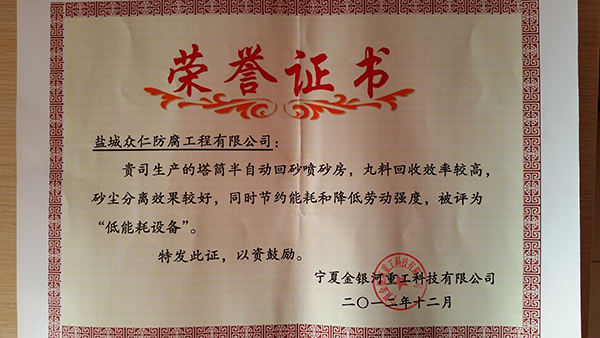 荣誉证书
盐城众仁防腐工程有限公司：
贵司生产的塔筒半自动回砂喷砂房，九料回收效率较高，
砂尘分离效果较好，同时节约能耗和降低劳动强度，被评为
“低能耗设备”。
特发此证，以资鼓励。
宁夏金银河重工科技有限公司
二〇一二年十二月